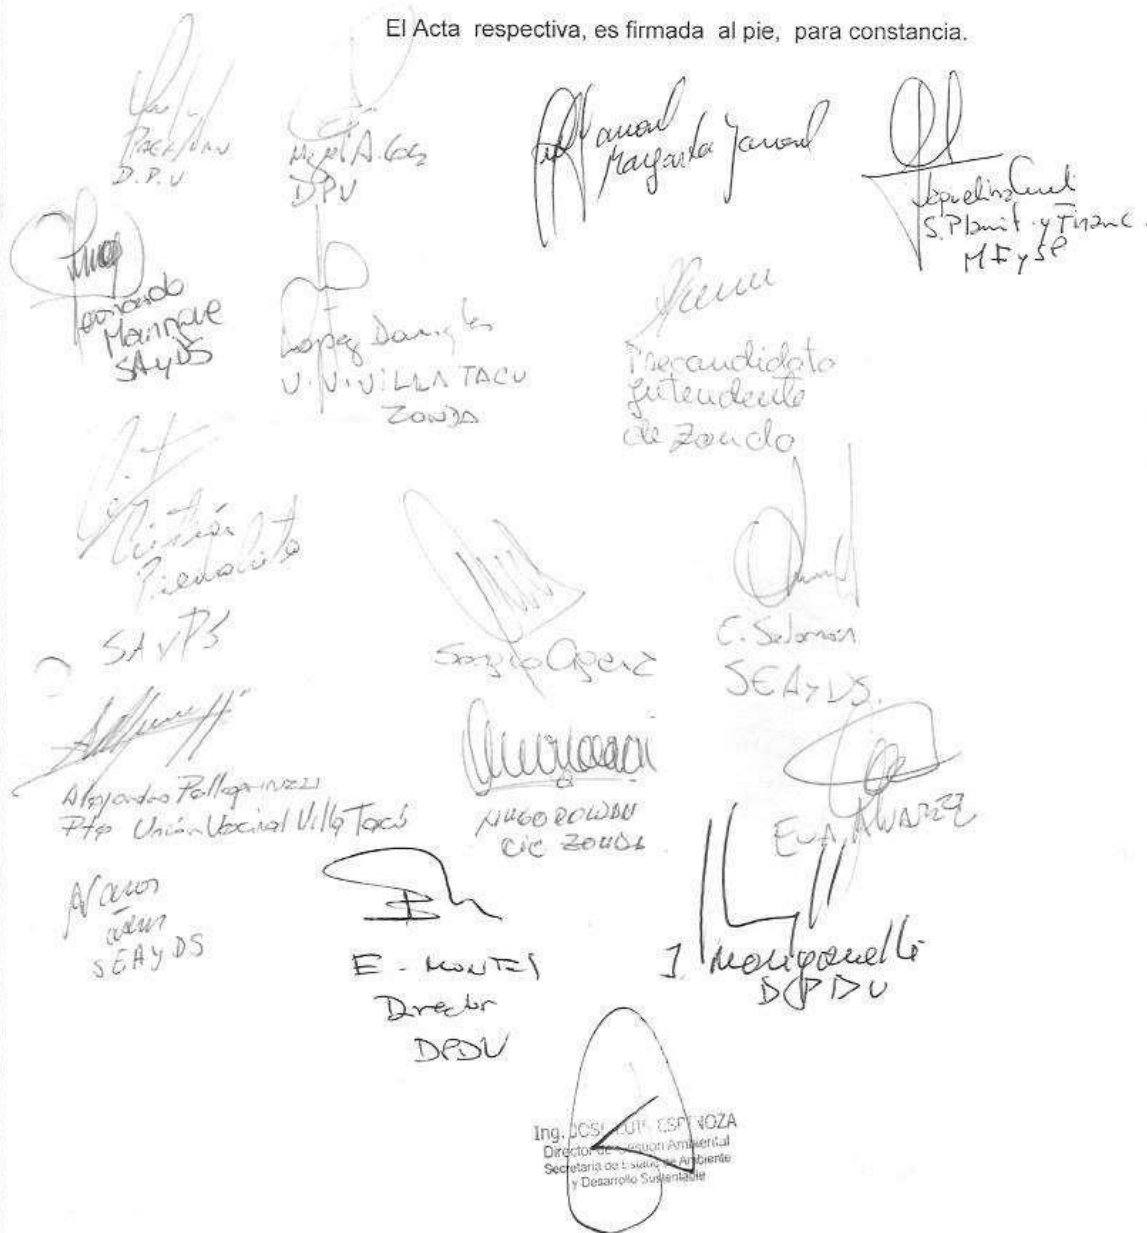 El Acta respectiva, es firmada al pie, para constancia.
D.P.U
Miguel A.
DPU
Margarita Yanard
S. Planif. y Financ.
MIySP
Leonardo
Manrique
SAyDS
Lopez Douglas
U.V. VILLA TACU
ZONDA
Precandidato
Intendente
de Zonda
Cristián
Piedrahita
SAyDS
Sergio
E. Salomón
SEAyDS.
Alejandro Pellegrinuzzi
Pte Unión Vecinal Villa Tacú
HUGO ROLDAN
CIC ZONDA
EVA ALVAREZ
SEAyDS
E. MONTES
Director
DPDU
J. Manganelli
DPDU
Ing. JOSE LUIS ESPINOZA
Director de Gestión Ambiental
Secretaría de Estado de Ambiente
y Desarrollo Sustentable